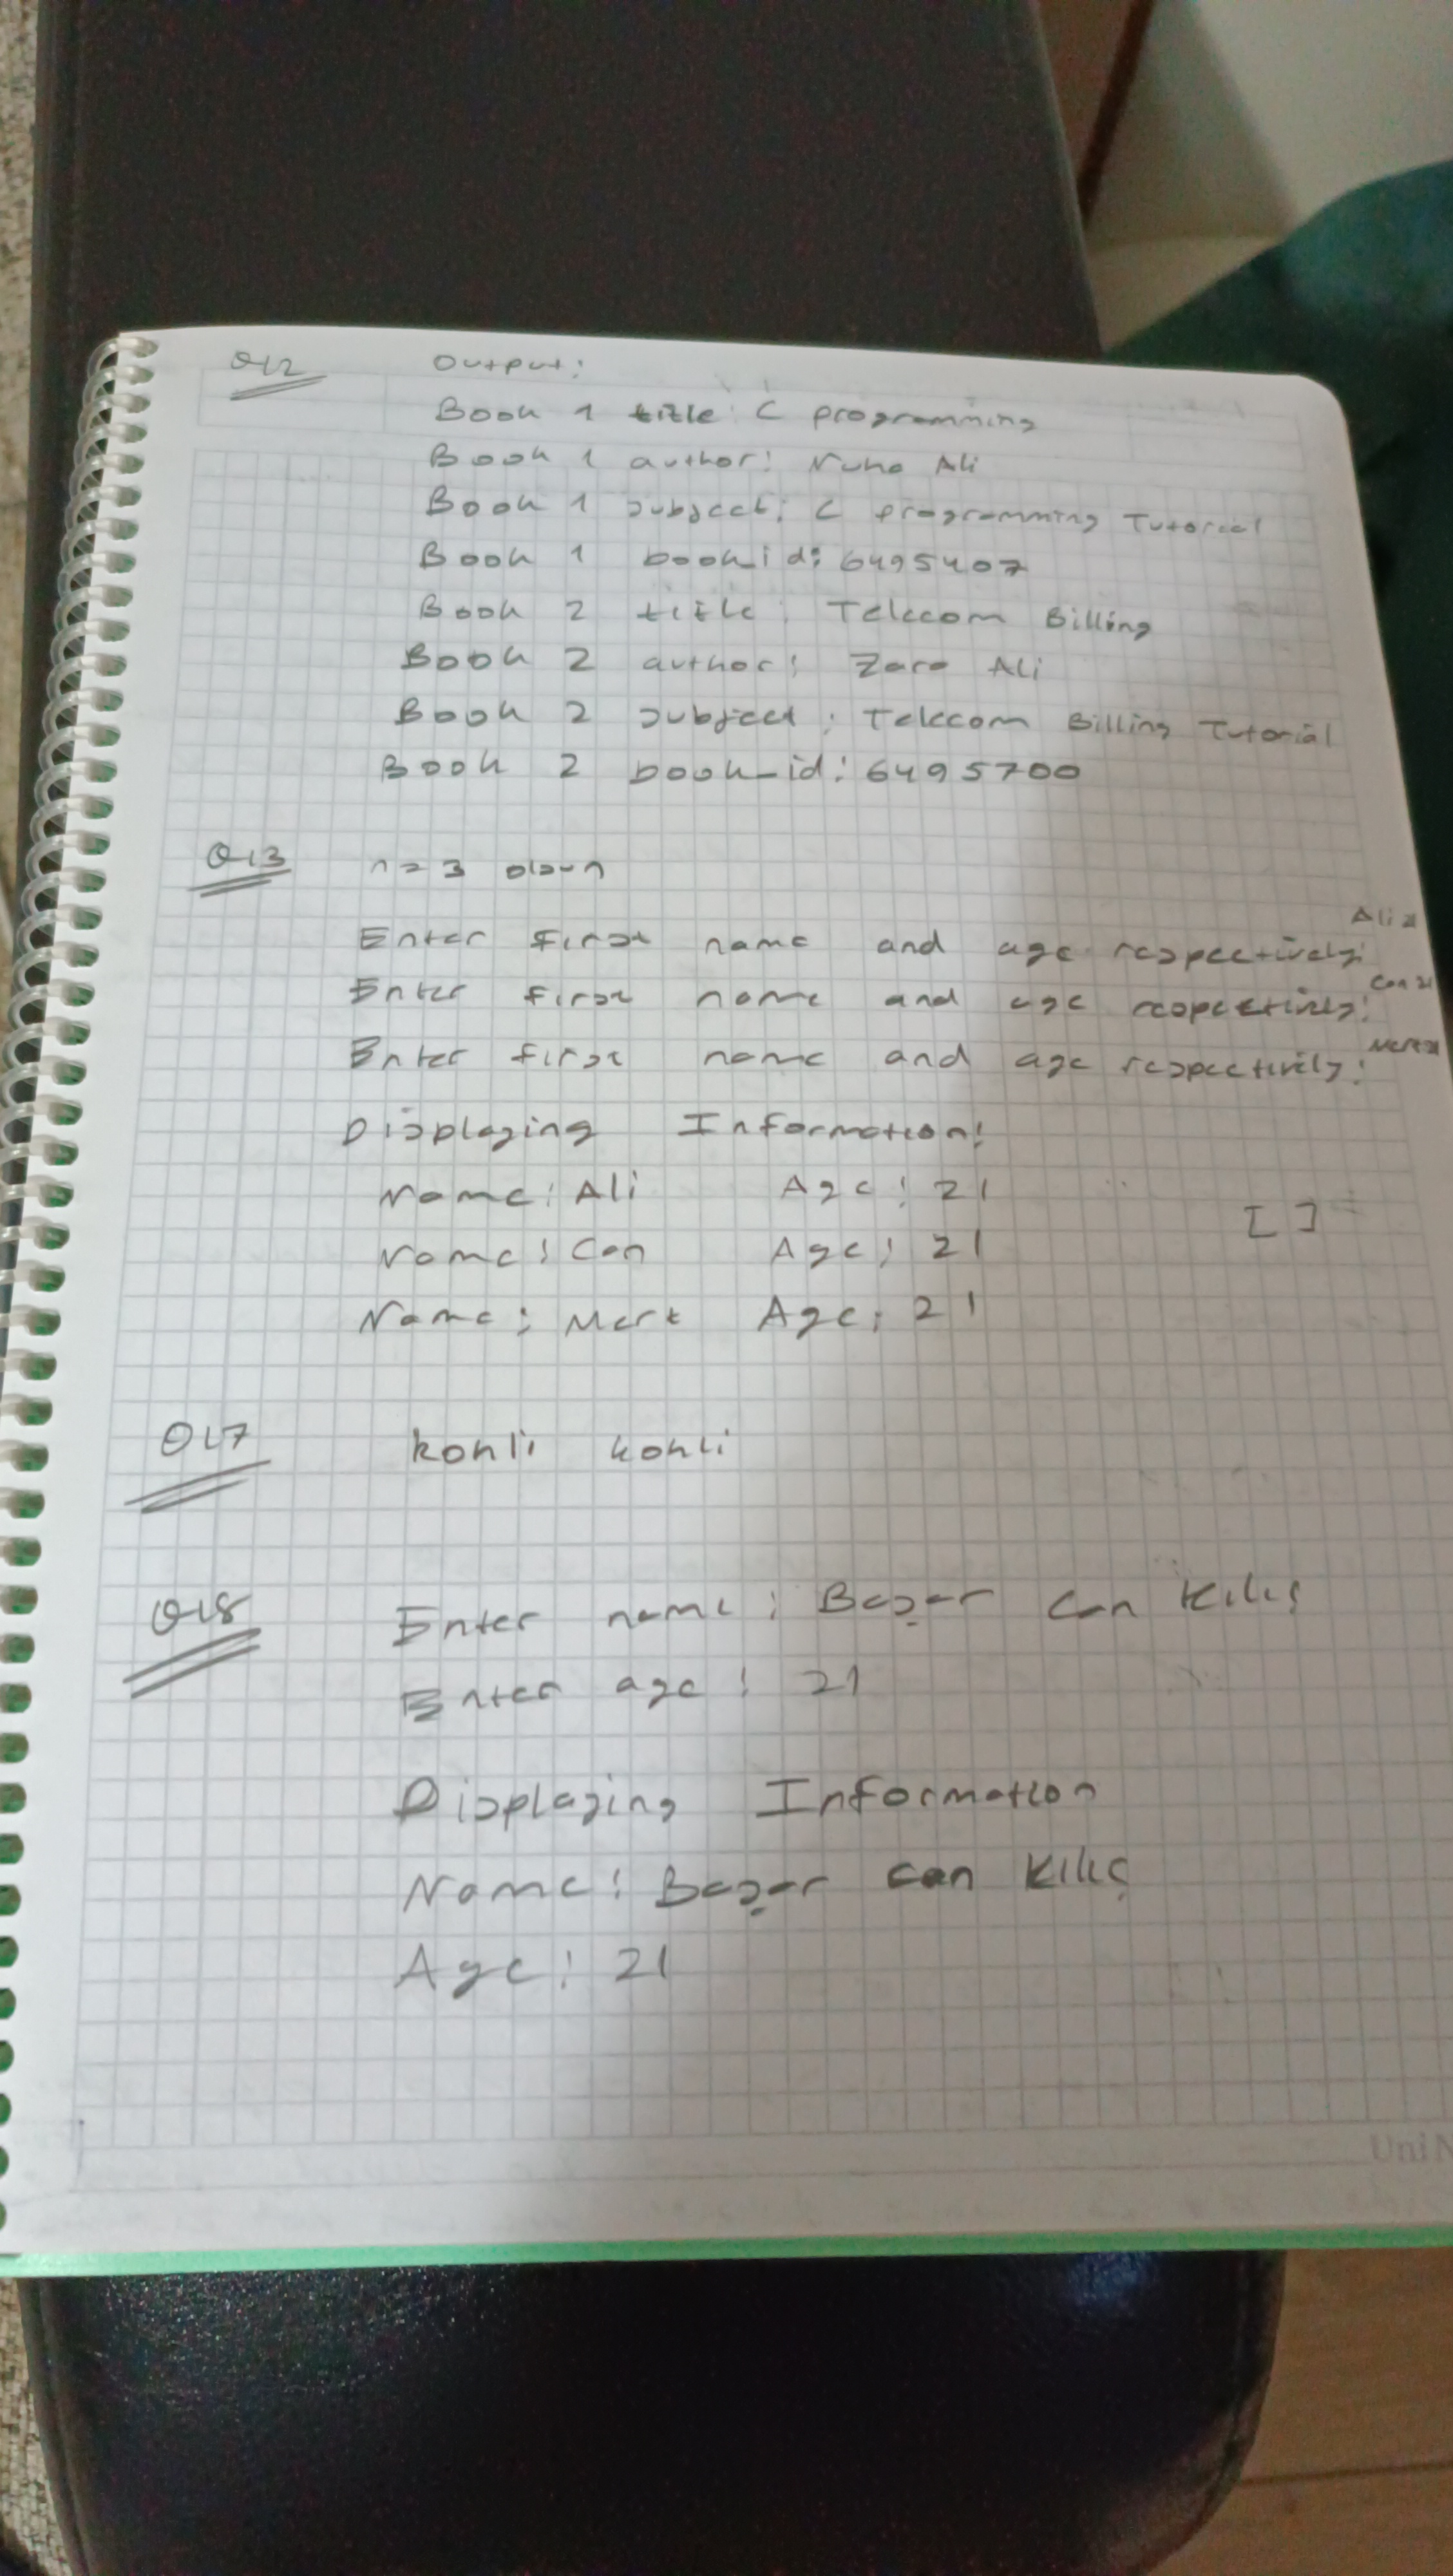 Q12 Output:
Book 1 title: C programming
Book 1 author: Nuha Ali
Book 1 subject: C programming Tutorial
Book 1 book_id: 6495407
Book 2 title: Telecom Billing
Book 2 author: Zara Ali
Book 2 subject: Telecom Billing Tutorial
Book 2 book_id: 6495700
Q13 n=3 olsun
Enter first name and age respectively: Ali 21
Enter first name and age respectively: Can 21
Enter first name and age respectively: Mert 21
Displaying Information:
Name: Ali Age: 21
[ ]
Name: Can Age: 21
Name: Mert Age: 21
Q17 kohli kohli
Q18 Enter name: Başar Can Kılıç
Enter age: 21
Displaying Information
Name: Başar Can Kılıç
Age: 21